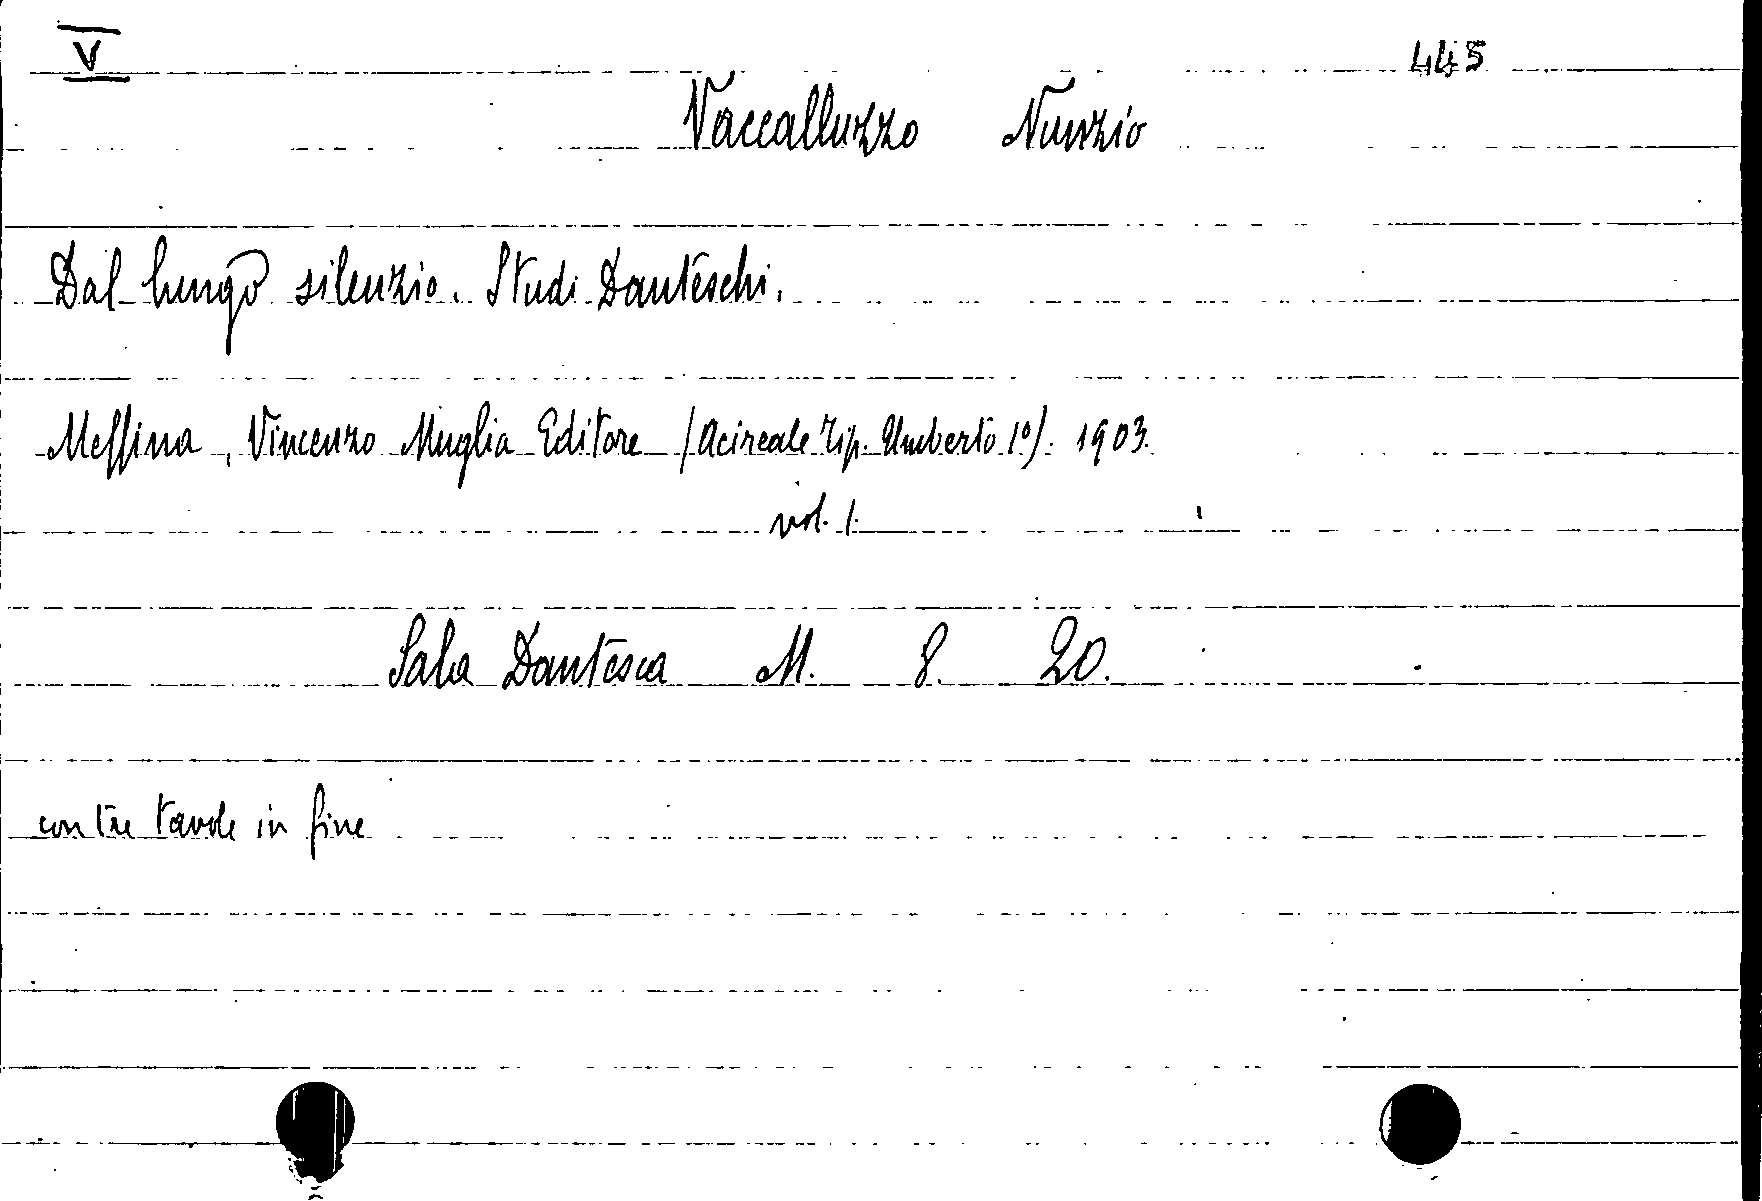 V 445
Vaccalluzzo Nunzio
Dal lungo silenzio. Studi Danteschi.
Messina, Vincenzo Muglia Editore (Acireale Tip. Umberto 1º). 1903.
vol. 1.
Sala Dantesca M. 8. 20.
con tre tavole in fine